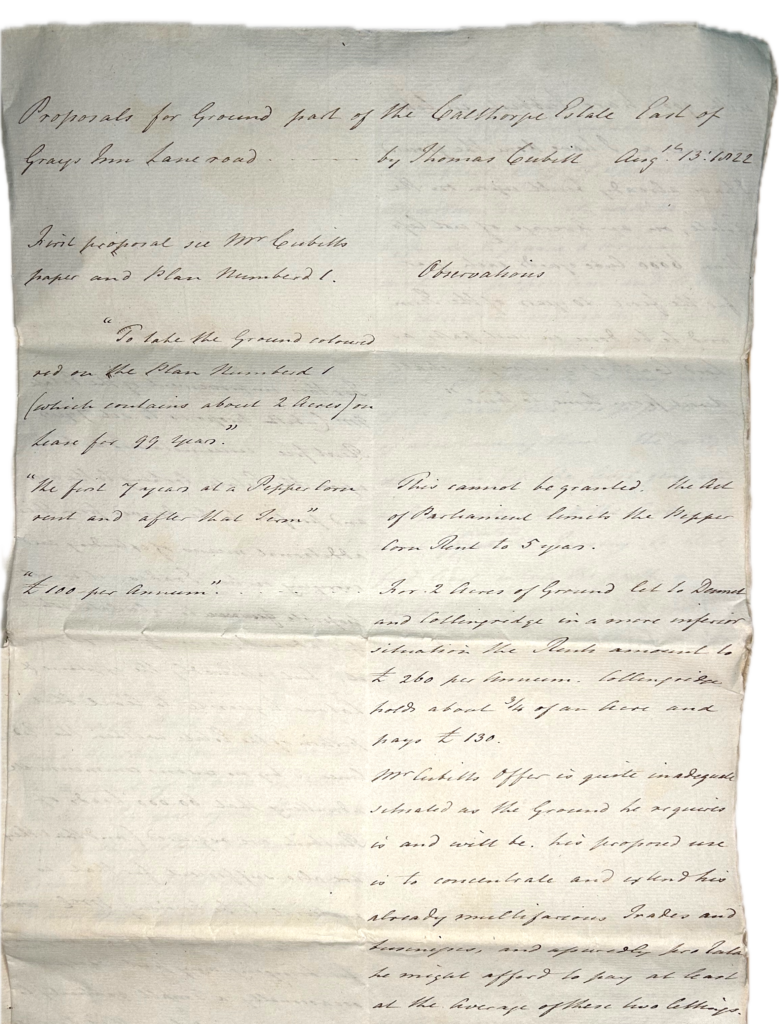 Proposals for Ground part of the Calthorpe Estate East of
Grays Inn Lane road. by Thomas Cubitt Augth 13: 1822
First proposal see Mr Cubitts
paper and Plan Numberd 1.
Observations
"To take the Ground coloured
red on the Plan Numberd 1
(which contains about 2 Acres) on
Lease for 99 Years."
"the first 7 years at a Pepper Corn
rent and after that Term"
This cannot be granted. the Act
of Parliament limits the Pepper
Corn Rent to 5 years.
"£100 per Annum".
For 2 Acres of Ground let to
and Collingridge in a more inferior
situation the Rents amount to
£260 per Annum. Collingridge
holds about 3/4 of an Acre and
pays £130.
Mr Cubitts Offer is quite inadequate
situated as the Ground he requires
is and will be. his proposed use
is to concentrate and extend his
already multifarious Trades and
business, and assuredly pro rata
he might afford to pay at least
at the average of these two lettings.